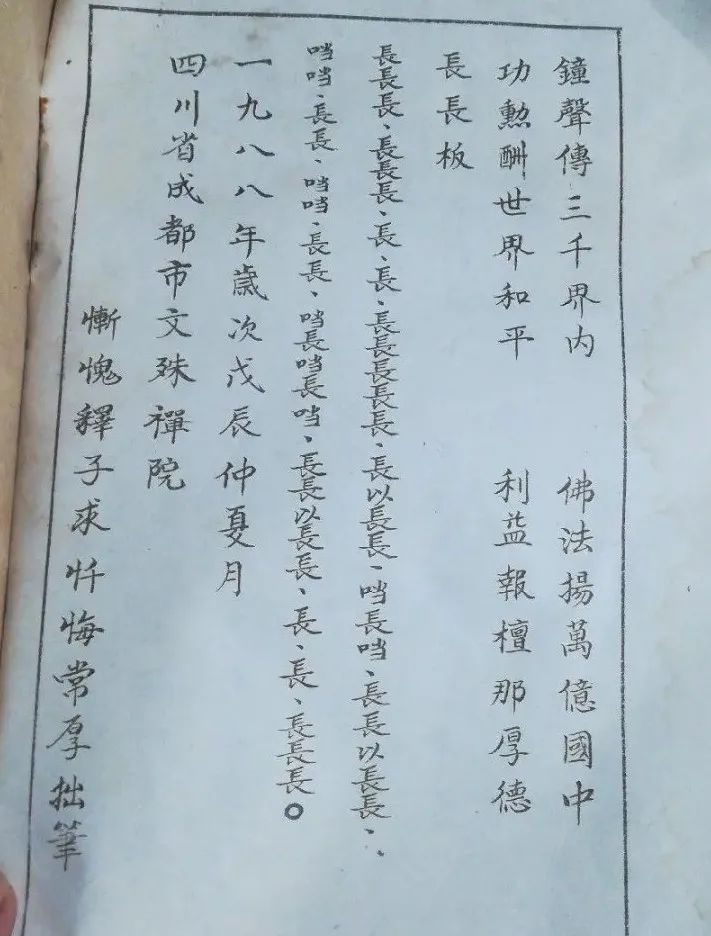 鐘聲傳三千界内　佛法揚萬億國中
功勲酬世界和平　利益報檀那厚德
長長板
長長長、長長長、長、長、長長長長長、長以長長、噹長噹、長長以長長、、
噹噹、長長、噹噹、長長、噹長噹長噹、長長以長長、長、長、長長長。
一九八八年歲次戊辰仲夏月
四川省成都市文殊禪院
慚愧釋子求忏悔常厚拙筆